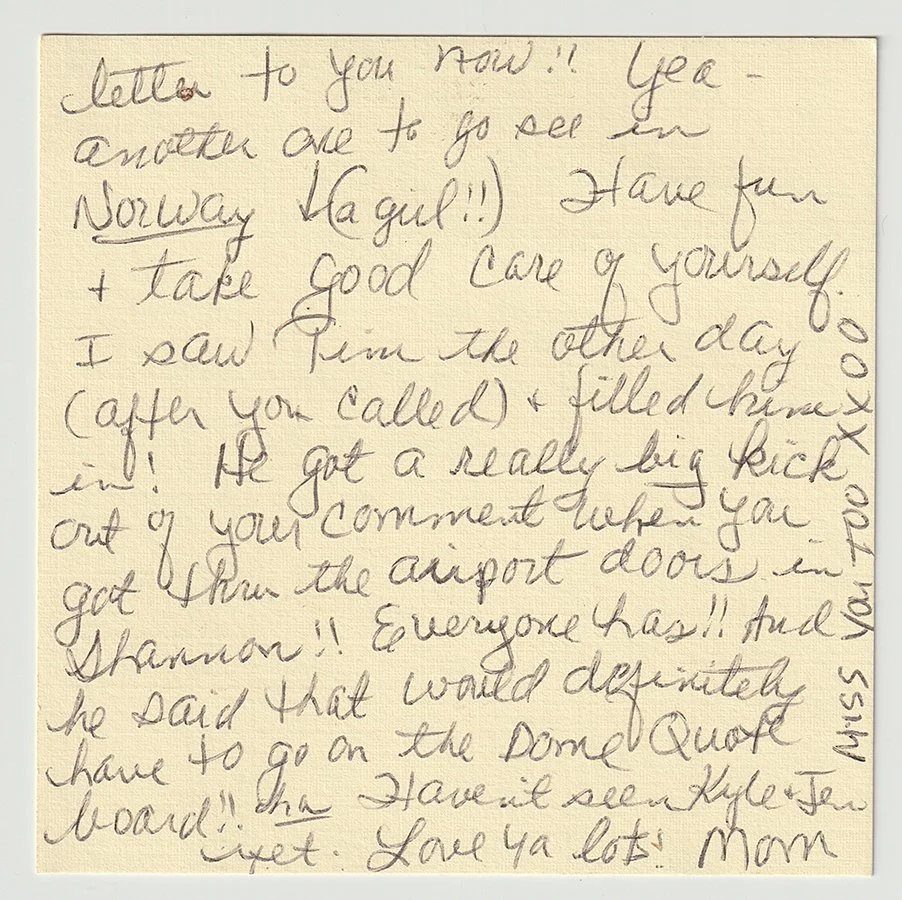 letter to you now!! Yea -
another one to go see in
Norway + (a girl!!) Have fun
+ take good care of yourself.
I saw Tim the other day
(after you called) + filled him
in! He got a really big kick
out of your comment when you
got thru the airport doors in
Shannon!! Everyone has!! And
he said that would definitely
have to go on the Dome Quote
board!! ha Haven't seen Kyle + Jen
yet. Love ya lots! Mom
Miss you too XXOO